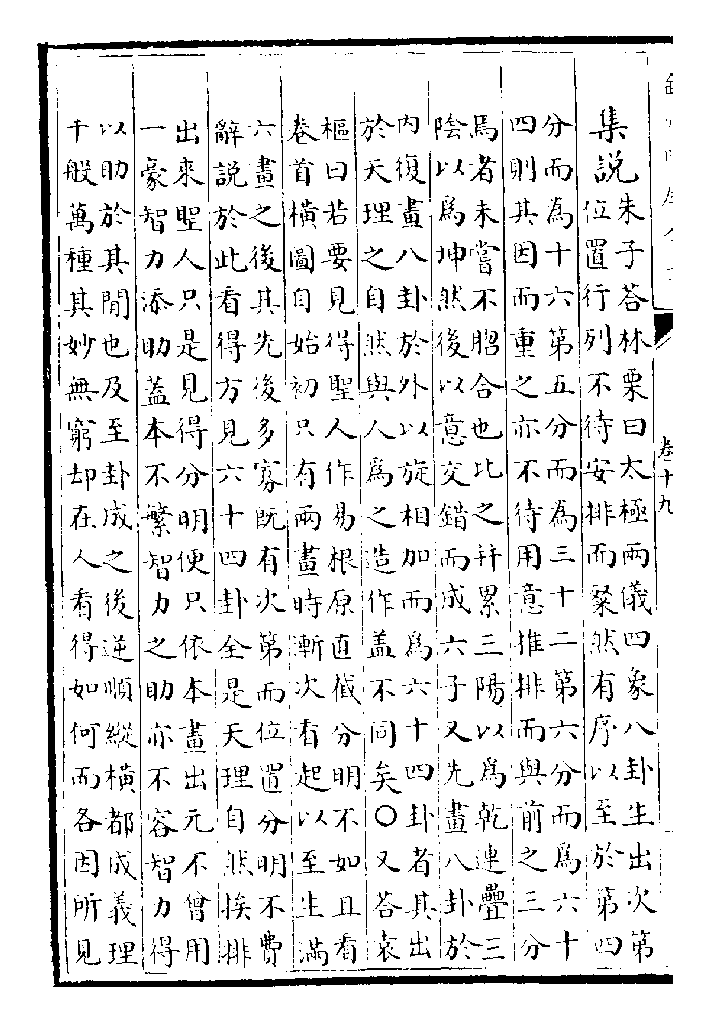 卷十九
集說
朱子答林栗曰太極兩儀四象八卦生出次第
位置行列不待安排而粲然有序以至於第四
分而為十六第五分而為三十二第六分而為六十
四則其因而重之亦不待用意推排而與前之三分
焉者未嘗不脗合也比之并累三陽以為乾連疊三
陰以為坤然後以意交錯而成六子又先畫八卦於
内復畫八卦於外以旋相加而為六十四卦者其出
於天理之自然與人為之造作盖不同矣○又答袁
樞曰若要見得聖人作易根原直截分明不如且看
卷首橫圖自始初只有兩畫時漸次看起以至生滿
六畫之後其先後多寡既有次第而位置分明不費
辭說於此看得方見六十四卦全是天理自然挨排
出來聖人只是見得分明便只依本畫出元不曾用
一豪智力添助蓋本不繁智力之助亦不容智力得
以助於其閒也及至卦成之後逆順縱橫都成義理
千般萬種其妙無窮却在人看得如何而各因所見